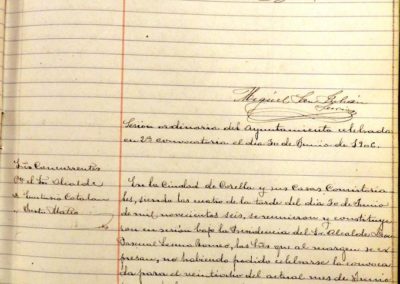 Miguel San Julián
Sesión ordinaria del Ayuntamiento celebrada
en 2ª convocatoria el día 30 de Junio de 1906.
Sres Concurrentes
el Sr Alcalde
Catalan
Mateo
En la Ciudad de Corella y sus Casas Consistoria-
les, siendo las cuatro de la tarde del día 30 de Junio
de mil novecientos seis, se reunieron y constituye-
ron en sesión bajo la Presidencia del Sr. Alcalde Don
Pascual, los Sres que al margen se ex-
presan, no habiendo podido celebrarse la convoca-
da para el veintiocho del actual mes de Junio